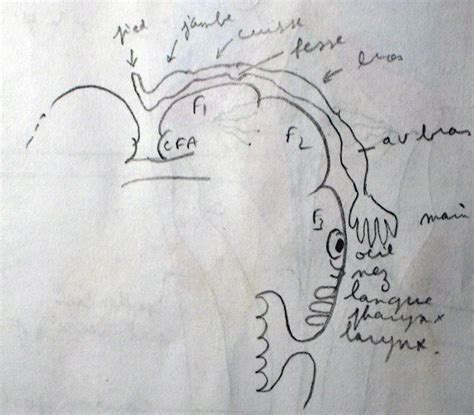 pied
jambe
cuisse
fesse
bras
F1
CFA
F2
av bras
main
F3
oeil
nez
langue
pharynx
larynx.